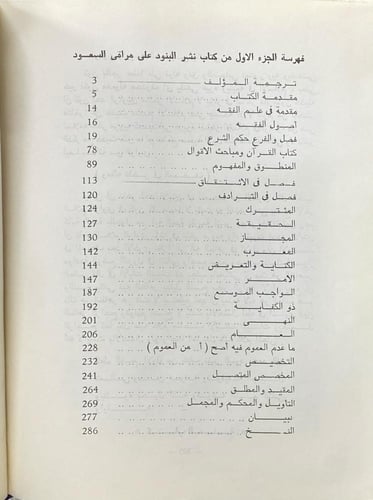 فهرسة الجزء الاول من كتاب نشر البنود على مراقى السعود
ترجمة المؤلف 3
مقدمة الكتاب 5
مقدمة فى علم الفقه 14
أصول الفقه 16
فصل والفرع حكم الشرع 19
كتاب القرآن ومباحث الاقوال 78
المنطوق والمفهوم 89
فصل فى الاشتقاق 113
فصل فى الترادف 120
المشترك 124
الحقيقة 127
المجاز 130
المعرب 142
الكناية والتعريض 144
الامر 147
الواجب الموسع 187
ذو الكفاية 192
النهى 201
العام 206
ما عدم العموم فيه أصح ( أ. من العموم ) 228
التخصيص 232
المخصص المتصل 241
المقيد والمطلق 264
التأويل والمحكم والمجمل 269
بيان 277
النسخ 286